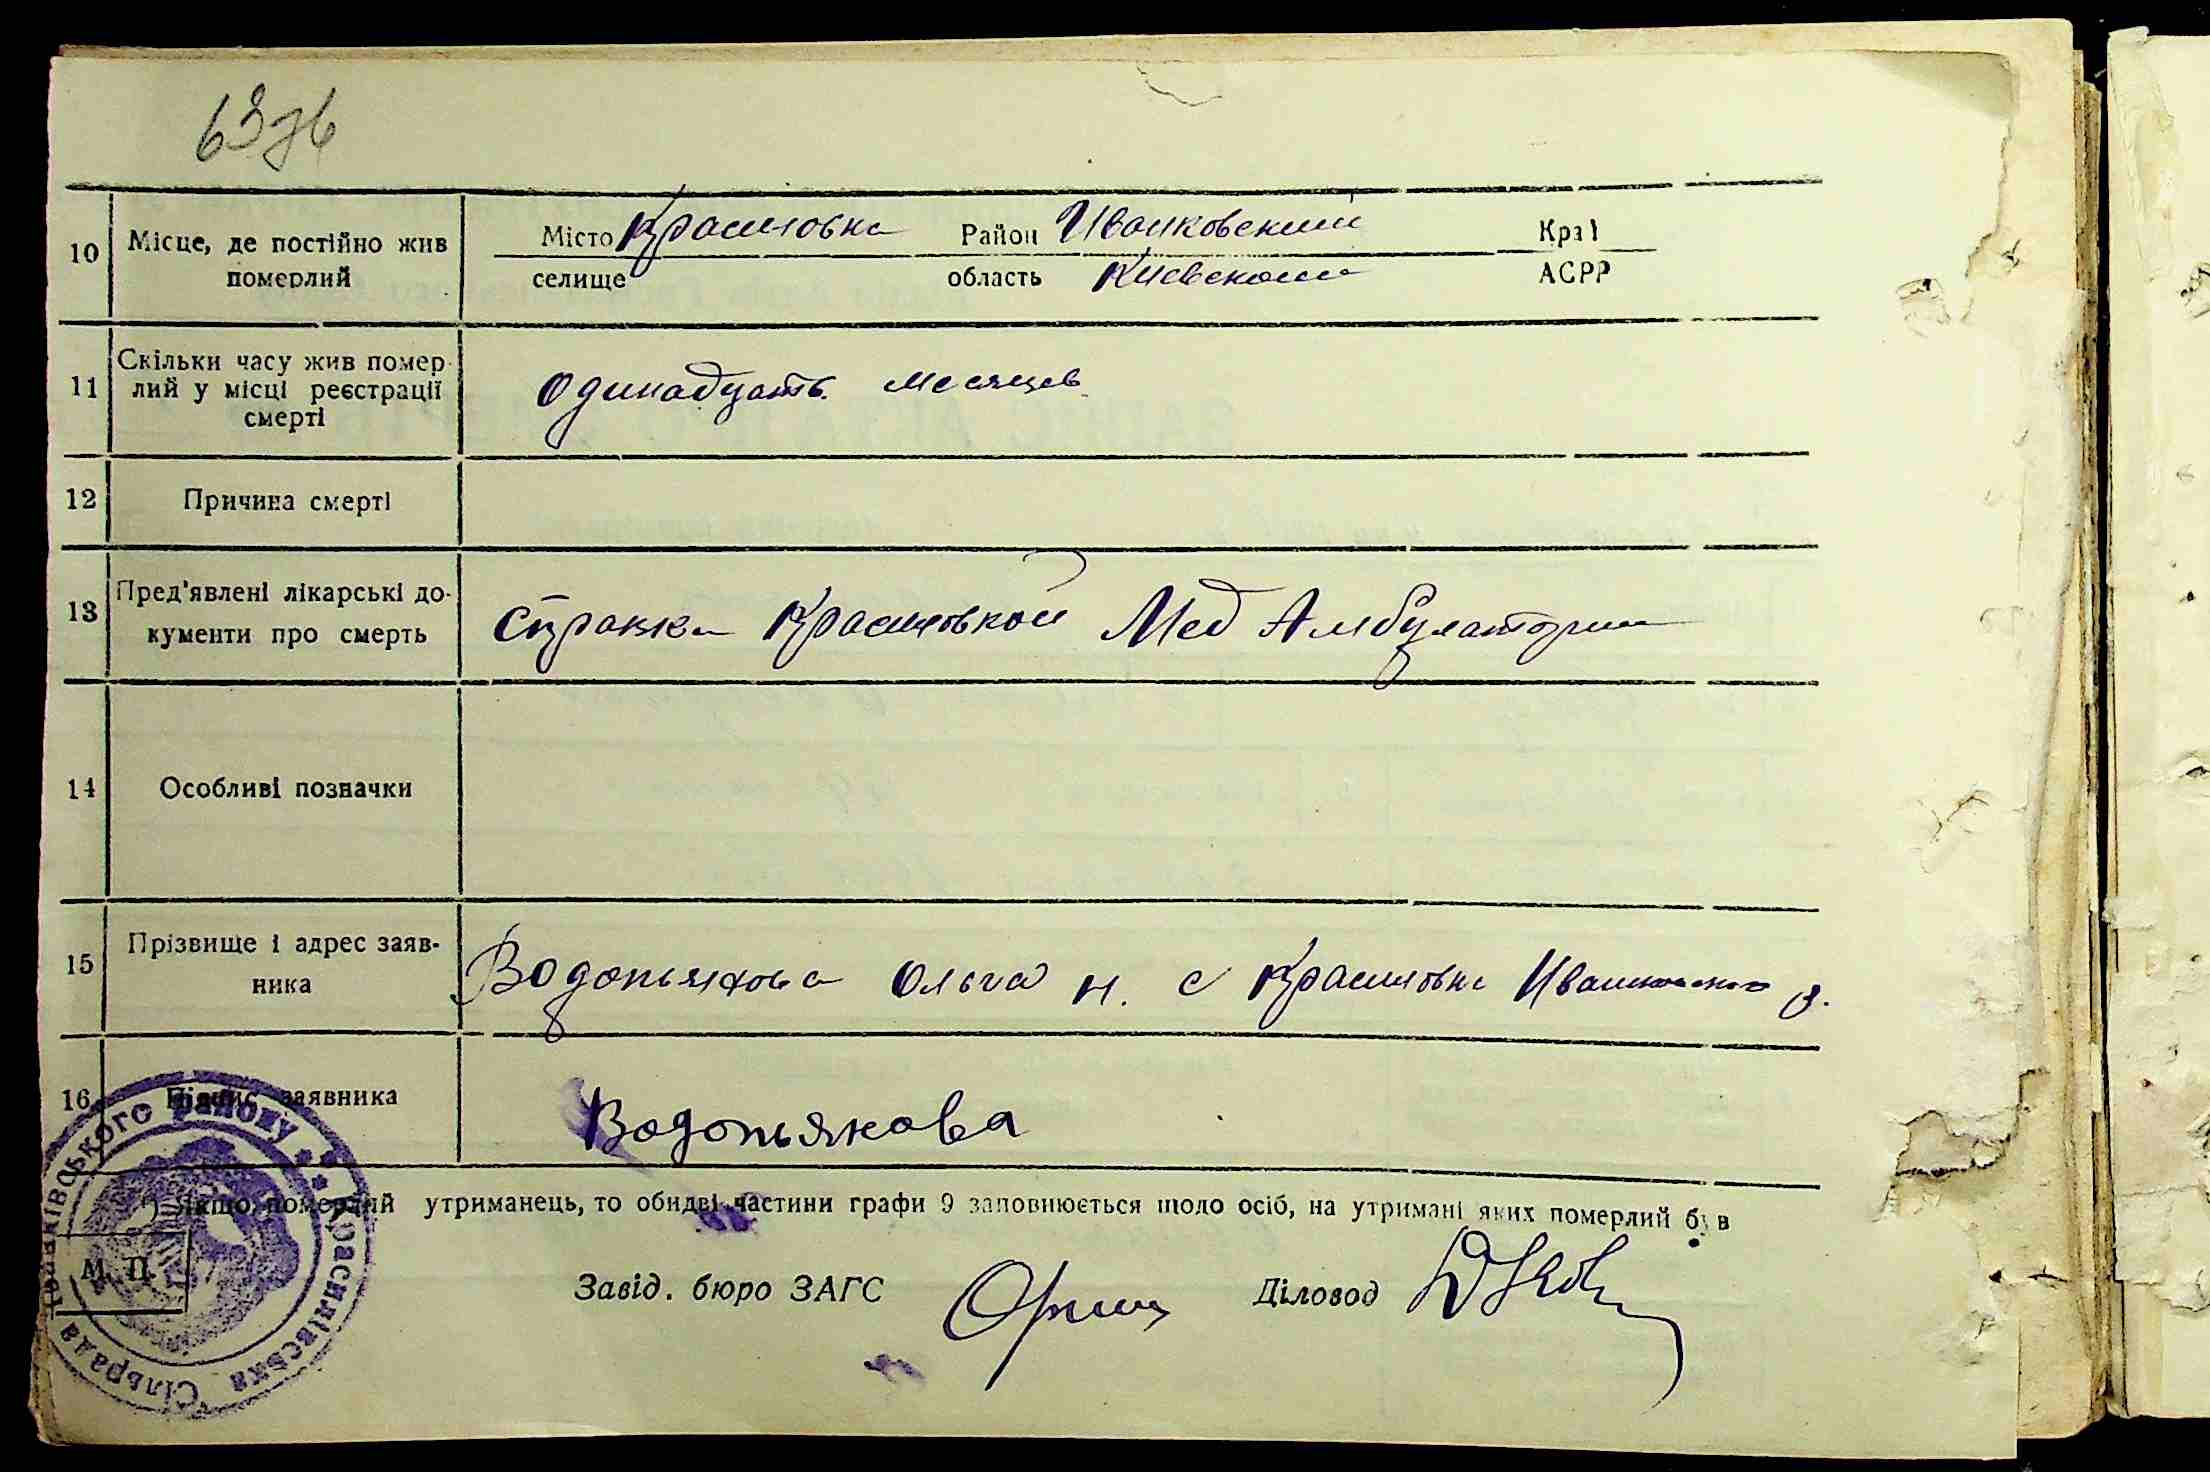 63зв
10 Місце, де постійно жив померлий
Місто Красиловка Район Иванковский Краї
селище область Киевской АСРР
11 Скільки часу жив помер-
лий у місці реєстрації
смерті
одинадцать месяцев
12 Причина смерті
13 Пред'явлені лікарські до-
кументи про смерть
справка Красиловкой Мед Амбулатории
14 Особливі позначки
15 Прізвище і адрес заяв-
ника
Водопьянова Ольга Н. с Красиловка Иванковского р.
16 Підпис заявника
Водопьянова
*) Якщо померлий утриманець, то обидві частини графи 9 заповнюється щодо осіб, на утримані яких померлий був
М. П.
Завід. бюро ЗАГС
Діловод
Красилівська Сільрада Іванківського району